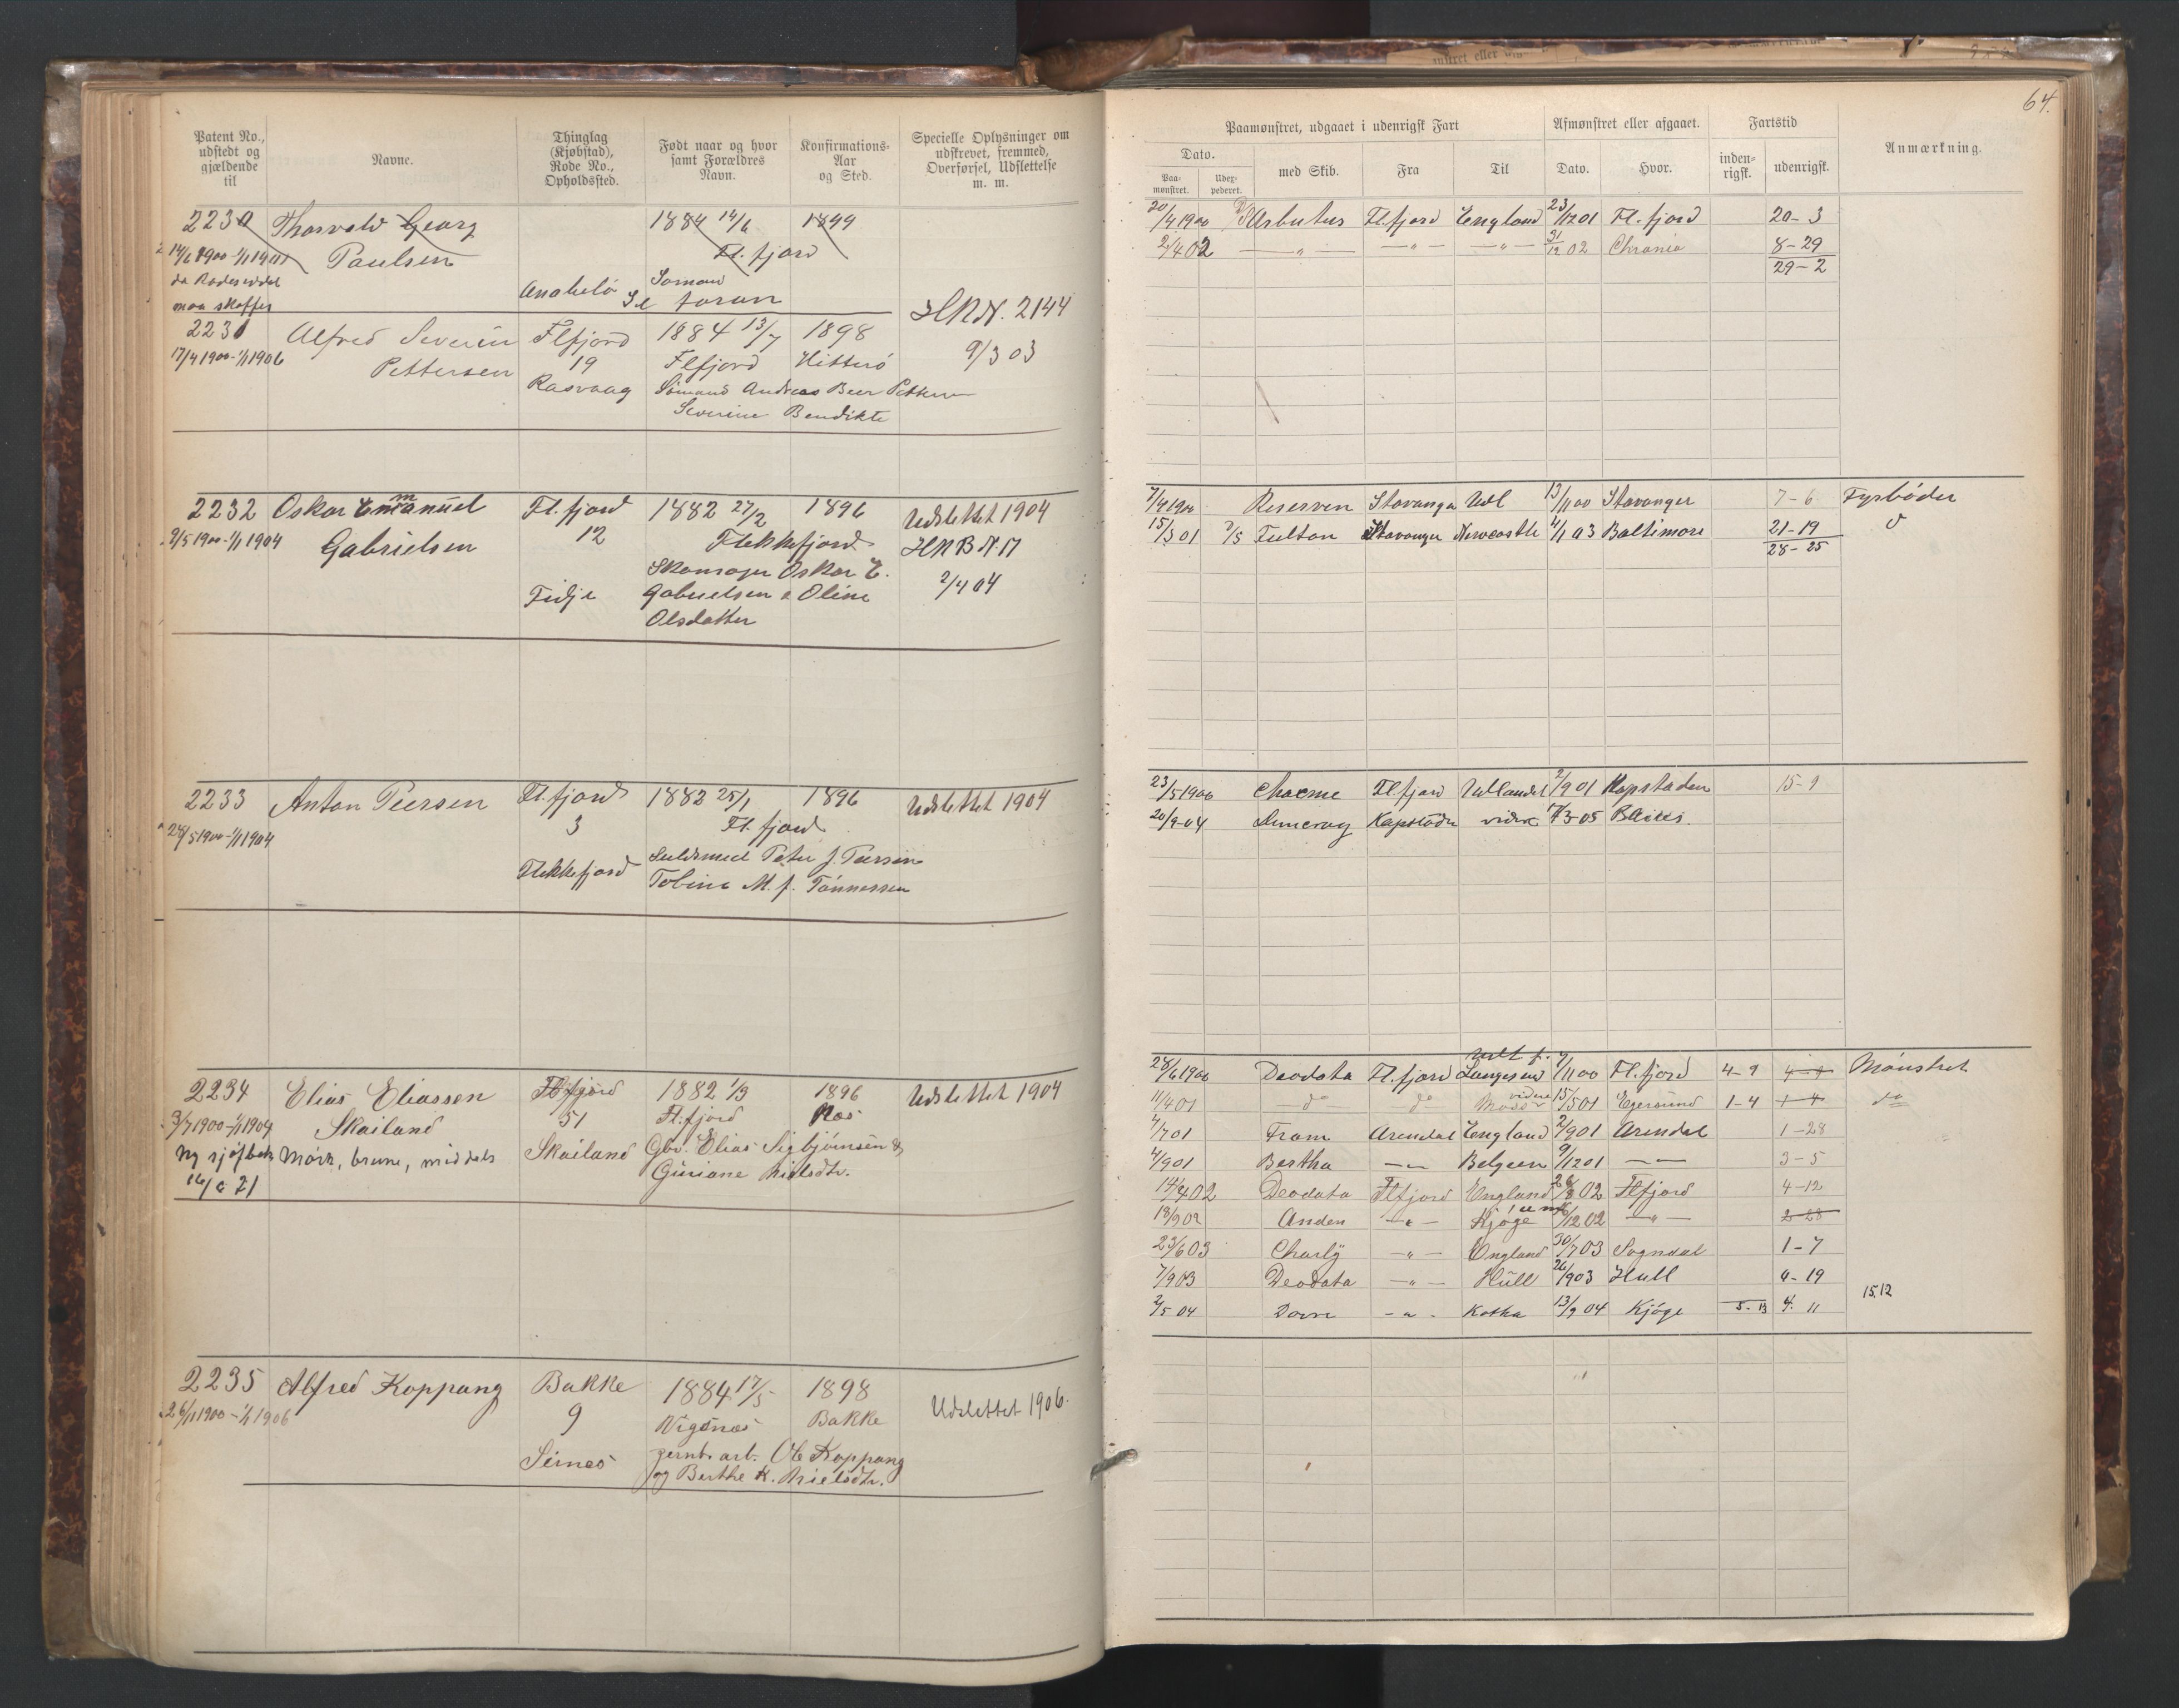 64.
Patent No., udstedt og gjældende til
Navne.
Thinglag (Kjøbstad), Rode No., Opholdssted.
Født naar og hvor samt Forældres Navn.
Konfirmations-Aar og Sted.
Specielle Oplysninger om udskrevet, fremmed, Overførsel, Udslettelse m. m.
Paamønstret, udgaaet i udenrigsk Fart
Afmønstret eller afgaaet.
Fartstid
Anmærkning.
Dato.
Paa-mønstret.
Udex-pederet.
med Skib.
Fra
Til
Dato.
Hvor.
inden-rigsk.
udenrigsk.
2230 Thorvald Georg 1884 14/6 1899
14/6 1900-1/1 1901 Paulsen Fl. fjord
da Rodeseddel Anabelø Sømand
maa skaffes
2231 Alfred Severin Flfjord 1884 13/7 1898 HRN. 2144
17/4 1900-1/1 1906 Pettersen 19 Flfjord Hitterø 9/3 03
Rasvaag Sømand Andreas Beer Petters
Severine Bendikte
20/4 1900 D/S Arbutus Fl.fjord England 23/12 01 Fl. fjord 20-3
2/4 02 — " — — " — — " — 31/12 02 Chrania 8-29
29-2
2232 Oskar Emanuel Fl. fjord 1882 27/2 1896 Udslettet 1904
9/5 1900-1/1 1904 Gabrielsen 12 Flekkefjord HRB N 17
Skomager Oskar E. 2/4 04
Fidje Gabrielsen & Oline
Olsdatter
7/4 1900 Reserven Stavanger Udl 13/11 00 Stavanger 7-6 Fyrbøder
15/3 01 D/S Fulton Stavanger Newcastle 4/1 03 Baltimore 21-19
28-25
2233 Anton Peersen Fl. fjord 1882 25/1 1896 Udslettet 1904
28/5 1900-1/1 1904 3 Fl. fjord
Guldsmed Peter J. Peersen
Flekkefjord Tobine M. f. Tønnessen
23/5 1900 Fl.fjord Udlandet 2/9 01 Kapstaden 15-9
20/9-04 Kapstaden
2234 Elias Eliassen Flfjord 1882 1/3 1896 Udslettet 1904
3/7 1900-1/1 1904 Skailand 51 Fl. fjord Næs
Ny sjøfbok Mørk, brune, middels Skailand Gbr. Elias Sigbjørnsen &
21 Guriane Nielsdtr.
28/6 1900 Deodata Fl.fjord Langesund 9/11 00 Fl.fjord 4-9 Mønstret
11/4 01 — do — do Moss videre 15/5 01 Egersund 1-4 1-4 do
4/7 01 Fram Arendal England 2/9 01 Arendal 1-28
4/9 01 Bertha — " — Belgien 9/12 01 — " — 3-5
14/4 02 Deodata Flfjord England 26/8 02 Flfjord 4-12
18/9 02 Anden — " — Kjøge /12 02 — " — 2-28
23/6 03 Charly — " — England 30/7 03 Sogndal 1-7
7/9 03 Deodata — " — Hull 26/9 03 Hull 4-19
2/5 04 Dovre — " — Kotka 13/9 04 Kjøge 5-13 4. 11 15.12
2235 Alfred Koppang Bakke 1884 17/5 1898 Udslettet 1906.
26/11 1900-1/1 1906 9 Vigsnes Bakke
Sirnes jernb. arb. Ole Koppang
og Berthe K. Nielsdtr.